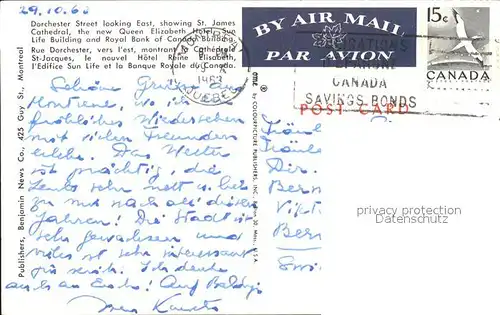 29.10.60
Dorchester Street looking East, showing St. James
Cathedral, the new Queen Elizabeth Hotel, Sun
Life Building and Royal Bank of Canada Building.
Rue Dorchester, vers l'est, montrant la Cathédrale
St-Jacques, le nouvel Hôtel Reine Elisabeth,
l'Edifice Sun Life et la Banque Royale du Canada.
BY AIR MAIL
PAR AVION
15c
CANADA
CANADA
SAVINGS BONDS
POST CARD
QUEBEC
Schöne Grüsse aus
wo ich
fröhliches Wiedersehen
mit vielen Freunden
erlebe. Das Wetter
ist prächtig, die
Leute sehr nett u. lieb
zu mir nach all' diesen
Jahren! Die Stadt ist
sehr gewachsen und
vieles ist sehr interessant
für mich. Ich denke
auch an Euch! Auf Baldigs
Publishers, Benjamin News Co., 425 Guy St., Montreal
by COLOURPICTURE PUBLISHERS, INC., Boston 30, Mass., U.S.A.
Dir.
Bern
Vikt
Bern
privacy protection
Datenschutz